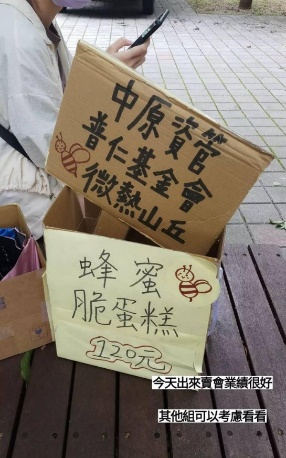 中原資管
普仁基金會
微熱山丘
蜂蜜
脆蛋糕
120元
今天出來賣會業績很好
其他組可以考慮看看